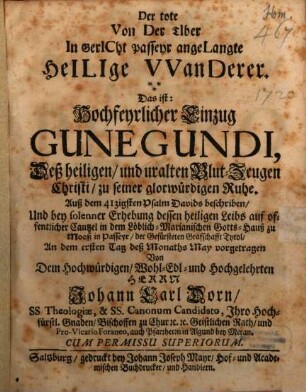 Der tote
Von Der Tiber
In GerICht Passeyr angeLangte
HeILIge VVanDerer.
Das ist:
Hochfeyrlicher Einzug
GUNEGUNDI,
Deß heiligen / und uralten Blut-Zeugen
Christi / zu seiner glorwürdigen Ruhe.
Auß dem 41zigsten Psalm Davids beschriben /
Und bey solenner Erhebung dessen heiligen Leibs auf of-
fentlicher Cantzel in dem Löblich-Marianischen Gotts-Hauß zu
Mooß in Passeyr / der Gefürsteten Graffschafft Tyrol /
An dem ersten Tag deß Monaths May vorgetragen
Von
Dem Hochwürdigen / Wohl-Edl- und Hochgelehrten
HERRN
Johann Carl Dorn /
SS. Theologiæ, & SS. Canonum Candidato, Ihro Hoch-
fürstl. Gnaden / Bischoffen zu Chur &c. &c. Geistlichen Rath / und
Pro-Vicario Foraneo, auch Pfarrherrn in Algund bey Meran.
CUM PERMISSU SUPERIORUM.
Saltzburg / gedruckt bey Johann Joseph Mayr / Hof- und Acade-
mischen Buchdrucker / und Handlern.